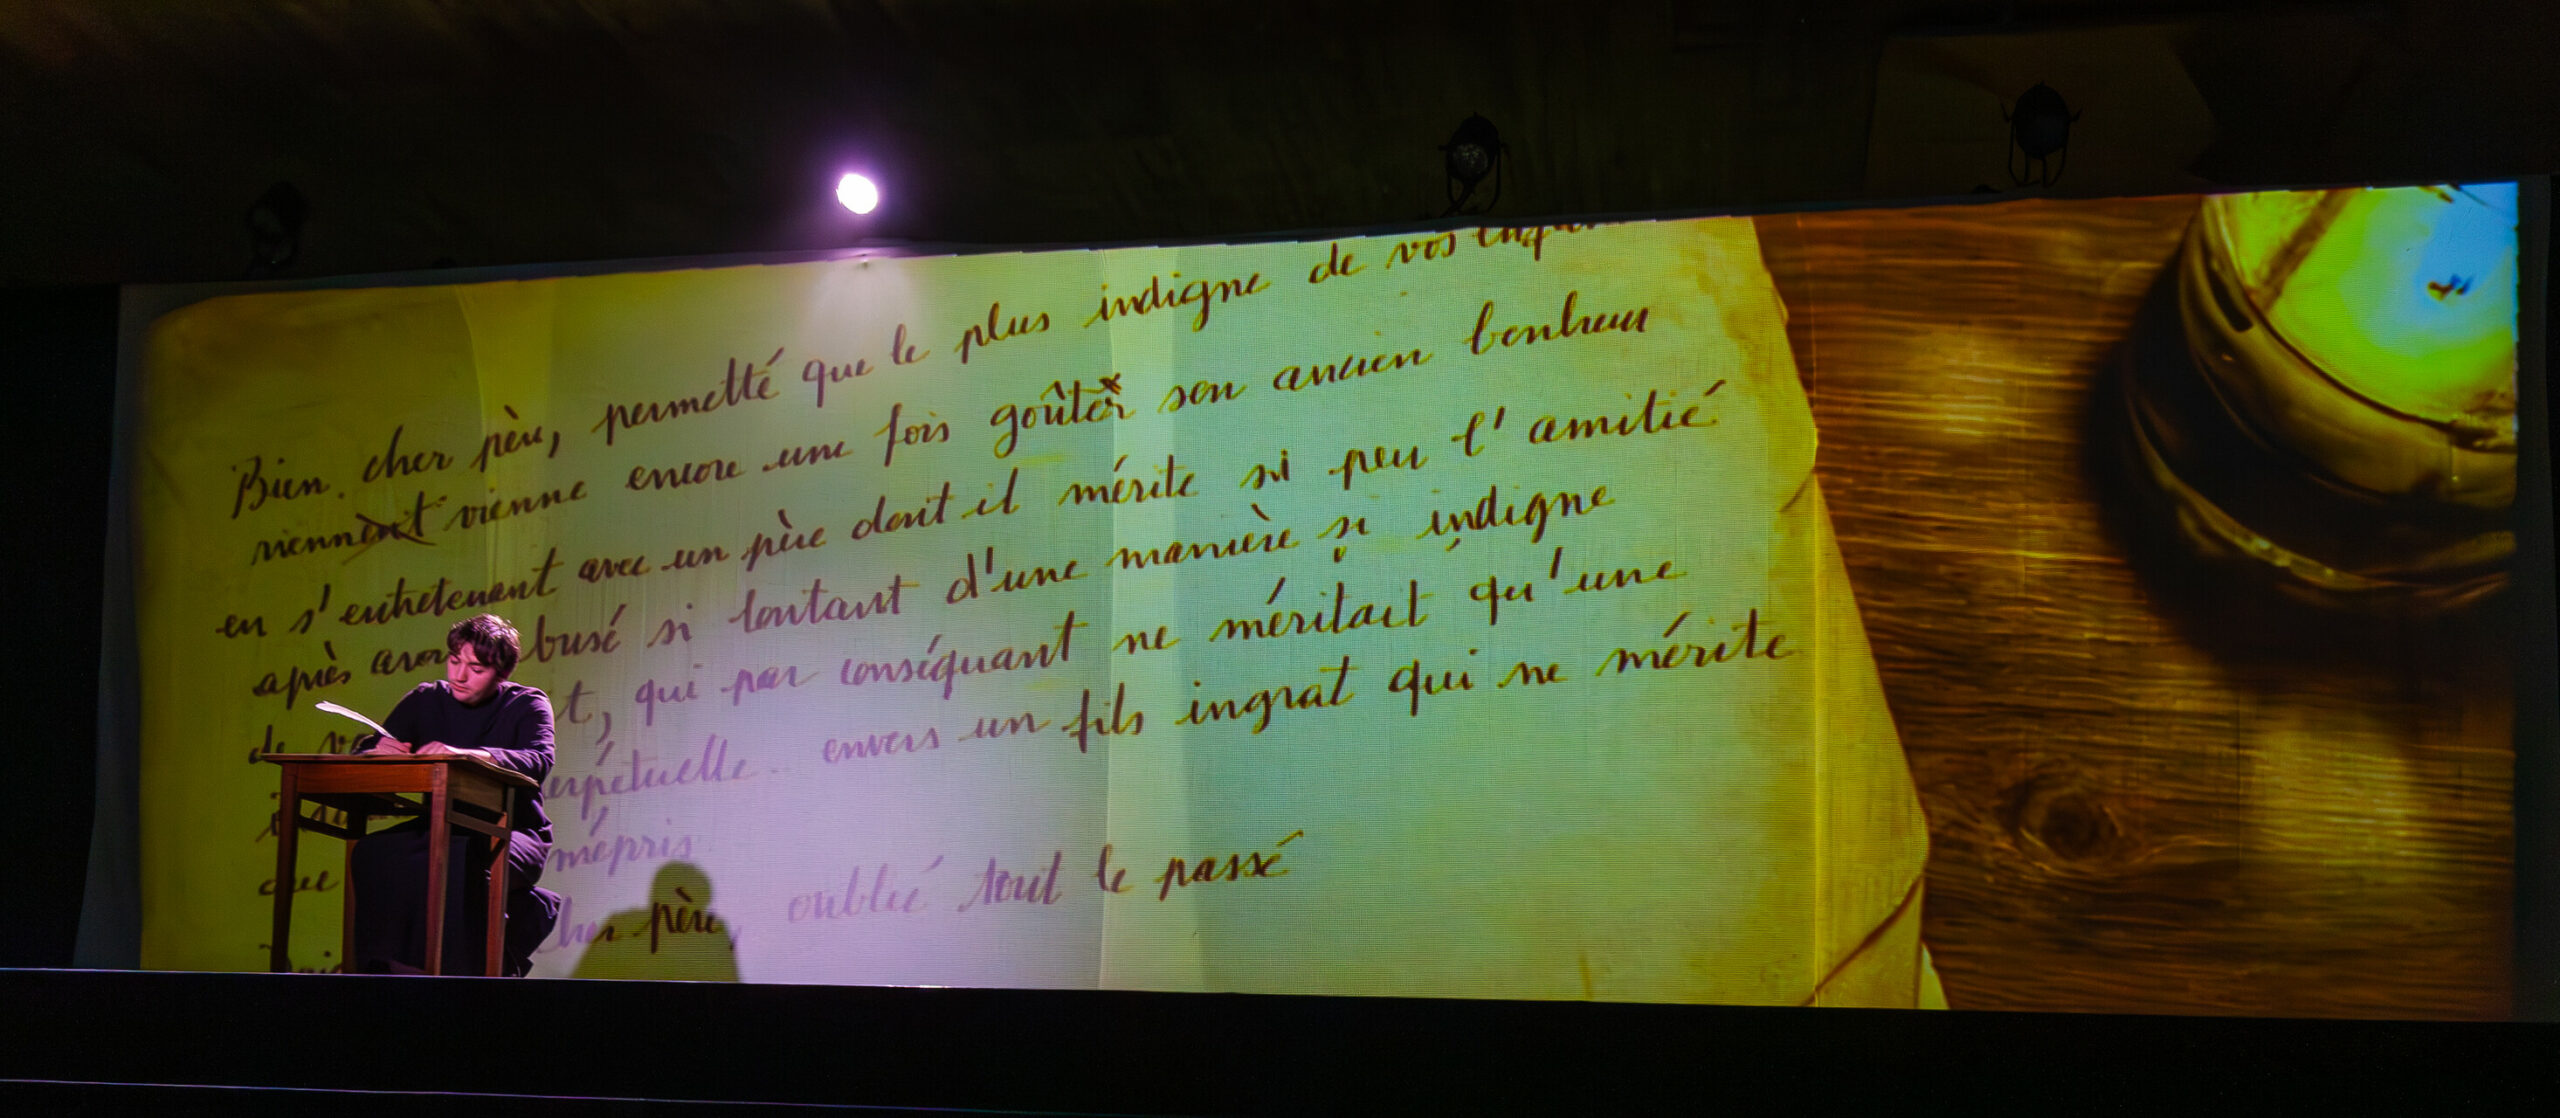 Bien. cher père, permetté que le plus indigne de vos
viennent vienne encore une fois goûter son ancien bonheur
en s'entretenant avec un père dont il mérite si peu l'amitié
après avoir busé si tontant d'une manière si indigne
de t, qui par conséquant ne méritait qu'une
erpétuelle.. envers un fils ingrat qui ne mérite
que mépris
cher père, oublié tout le passé